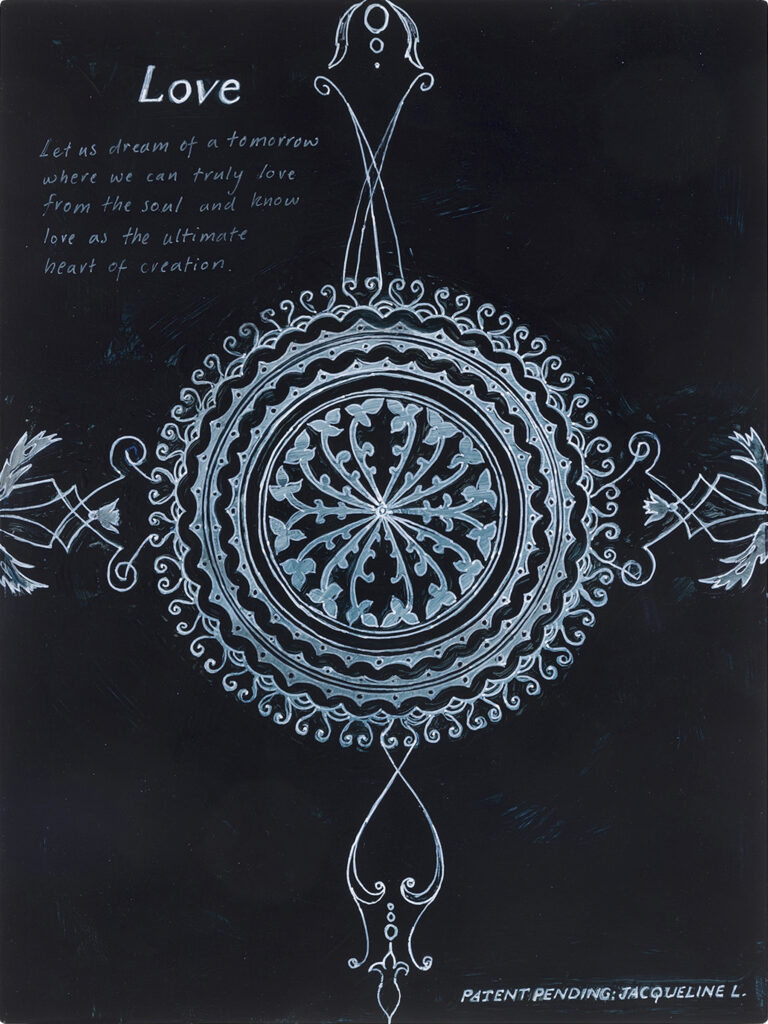 Love
Let us dream of a tomorrow
where we can truly love
from the soul and know
love as the ultimate
heart of creation.
PATENT PENDING: JACQUELINE L.